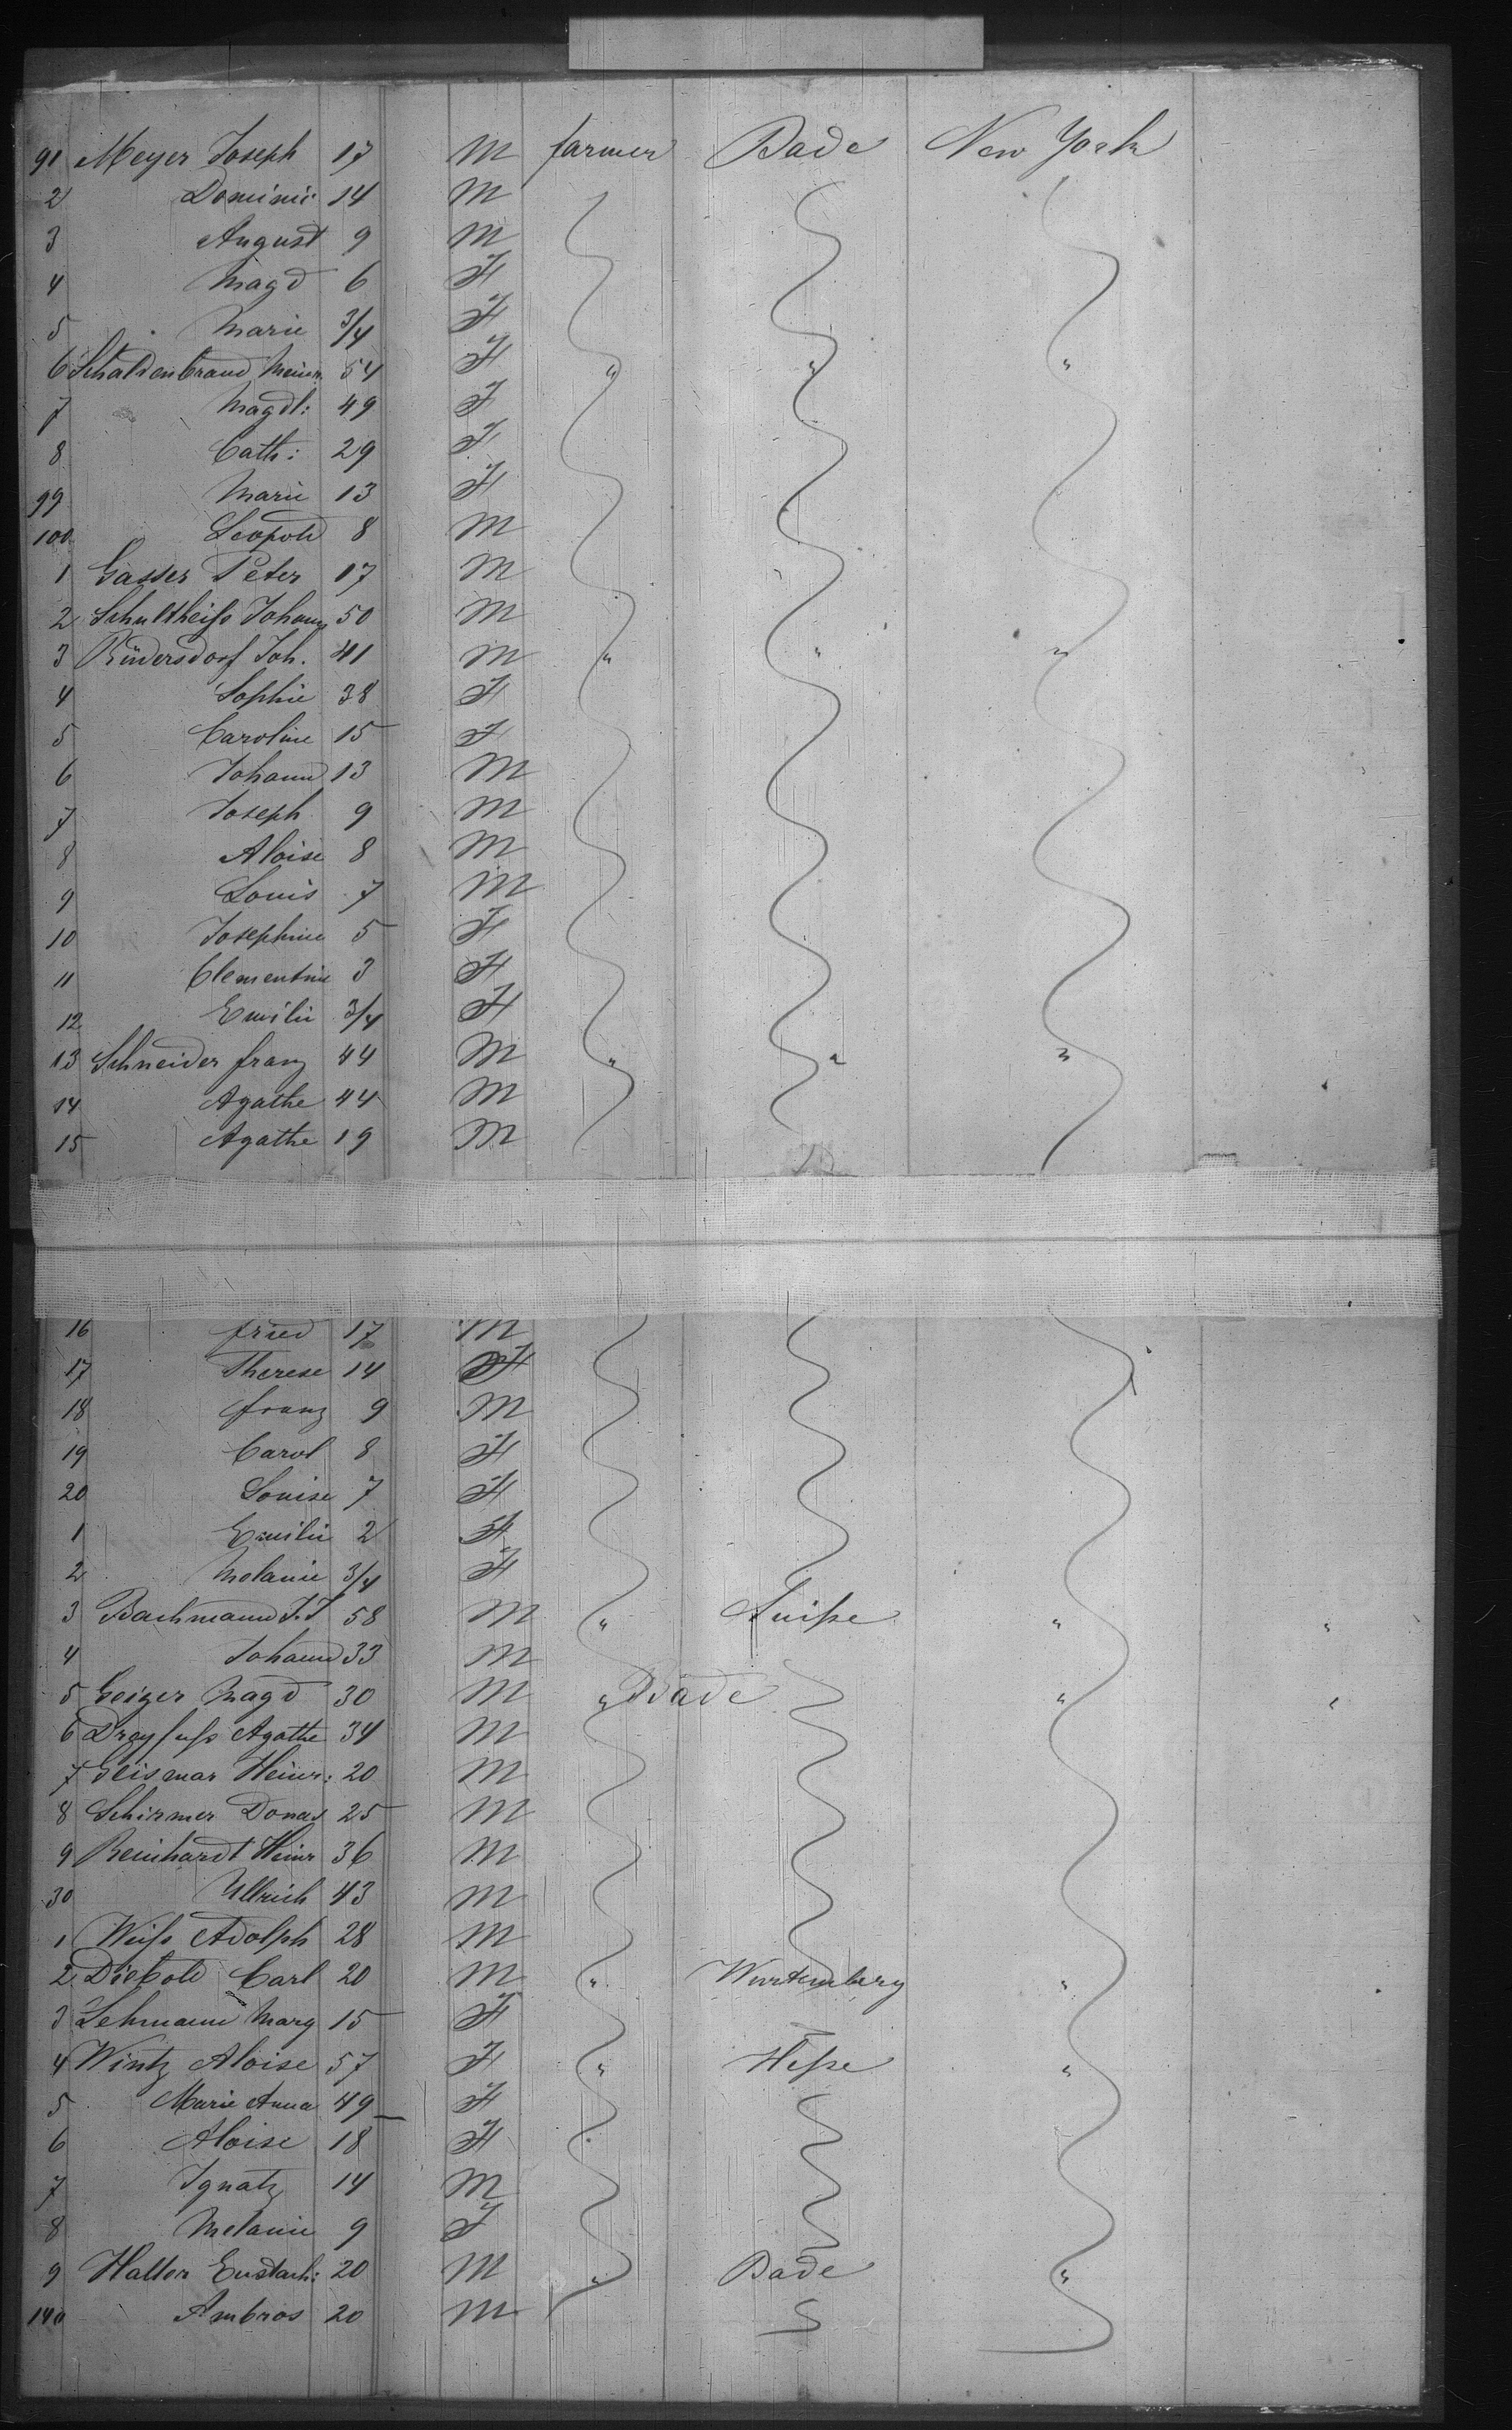 91 Meyer Joseph 17 M farmer Bade New York
2 Dominic 14 M
3 August 9 M
4 Magd 6 F
5 Marie 3/4 F
6 Schaldenbrand 54 F " " "
7 Magdl: 49 F
8 Cath: 29 F
99 Marie 13 F
100 Leopold 8 M
1 Gasser Peter 17 M
2 Schultheiß Johann 50 M
3 Rüdersdorf Joh. 41 M " " "
4 Sophie 38 F
5 Caroline 15 F
6 Johann 13 M
7 Joseph 9 M
8 Aloise 8 M
9 Louis 7 M
10 Josephine 5 F
11 Clementine 3 F
12 Emilie 3/4 F
13 Schneider franz 44 M " " "
14 Agathe 44 M
15 Agathe 19 M
16 fried 17 M
17 Therese 14 F
18 franz 9 M
19 Carol 8 F
20 Louise 7 F
1 Emilie 2 F
2 Melanie 3/4 F
3 Bachmann J. J 58 M " Suisse " "
4 Johann 33 M
5 Geiger Magd 30 M " Bade " "
6 Dreyfuß Agathe 34 M
7 Geismar Heinr: 20 M
8 Schirmer Donas 25 M
9 Reinhardt Heinr 36 M
30 Ullrich 43 M
1 Weiß Adolph 28 M
2 Diebold Carl 20 M " Wurtemberg "
3 Lehmann Marg 15 F
4 Wintz Aloise 57 F " Hesse "
5 Marie Anna 49 F
6 Aloise 18 F
7 Ignatz 14 M
8 Melanie 9 F
9 Halter Eustach: 20 M " Bade "
140 Ambros 20 M